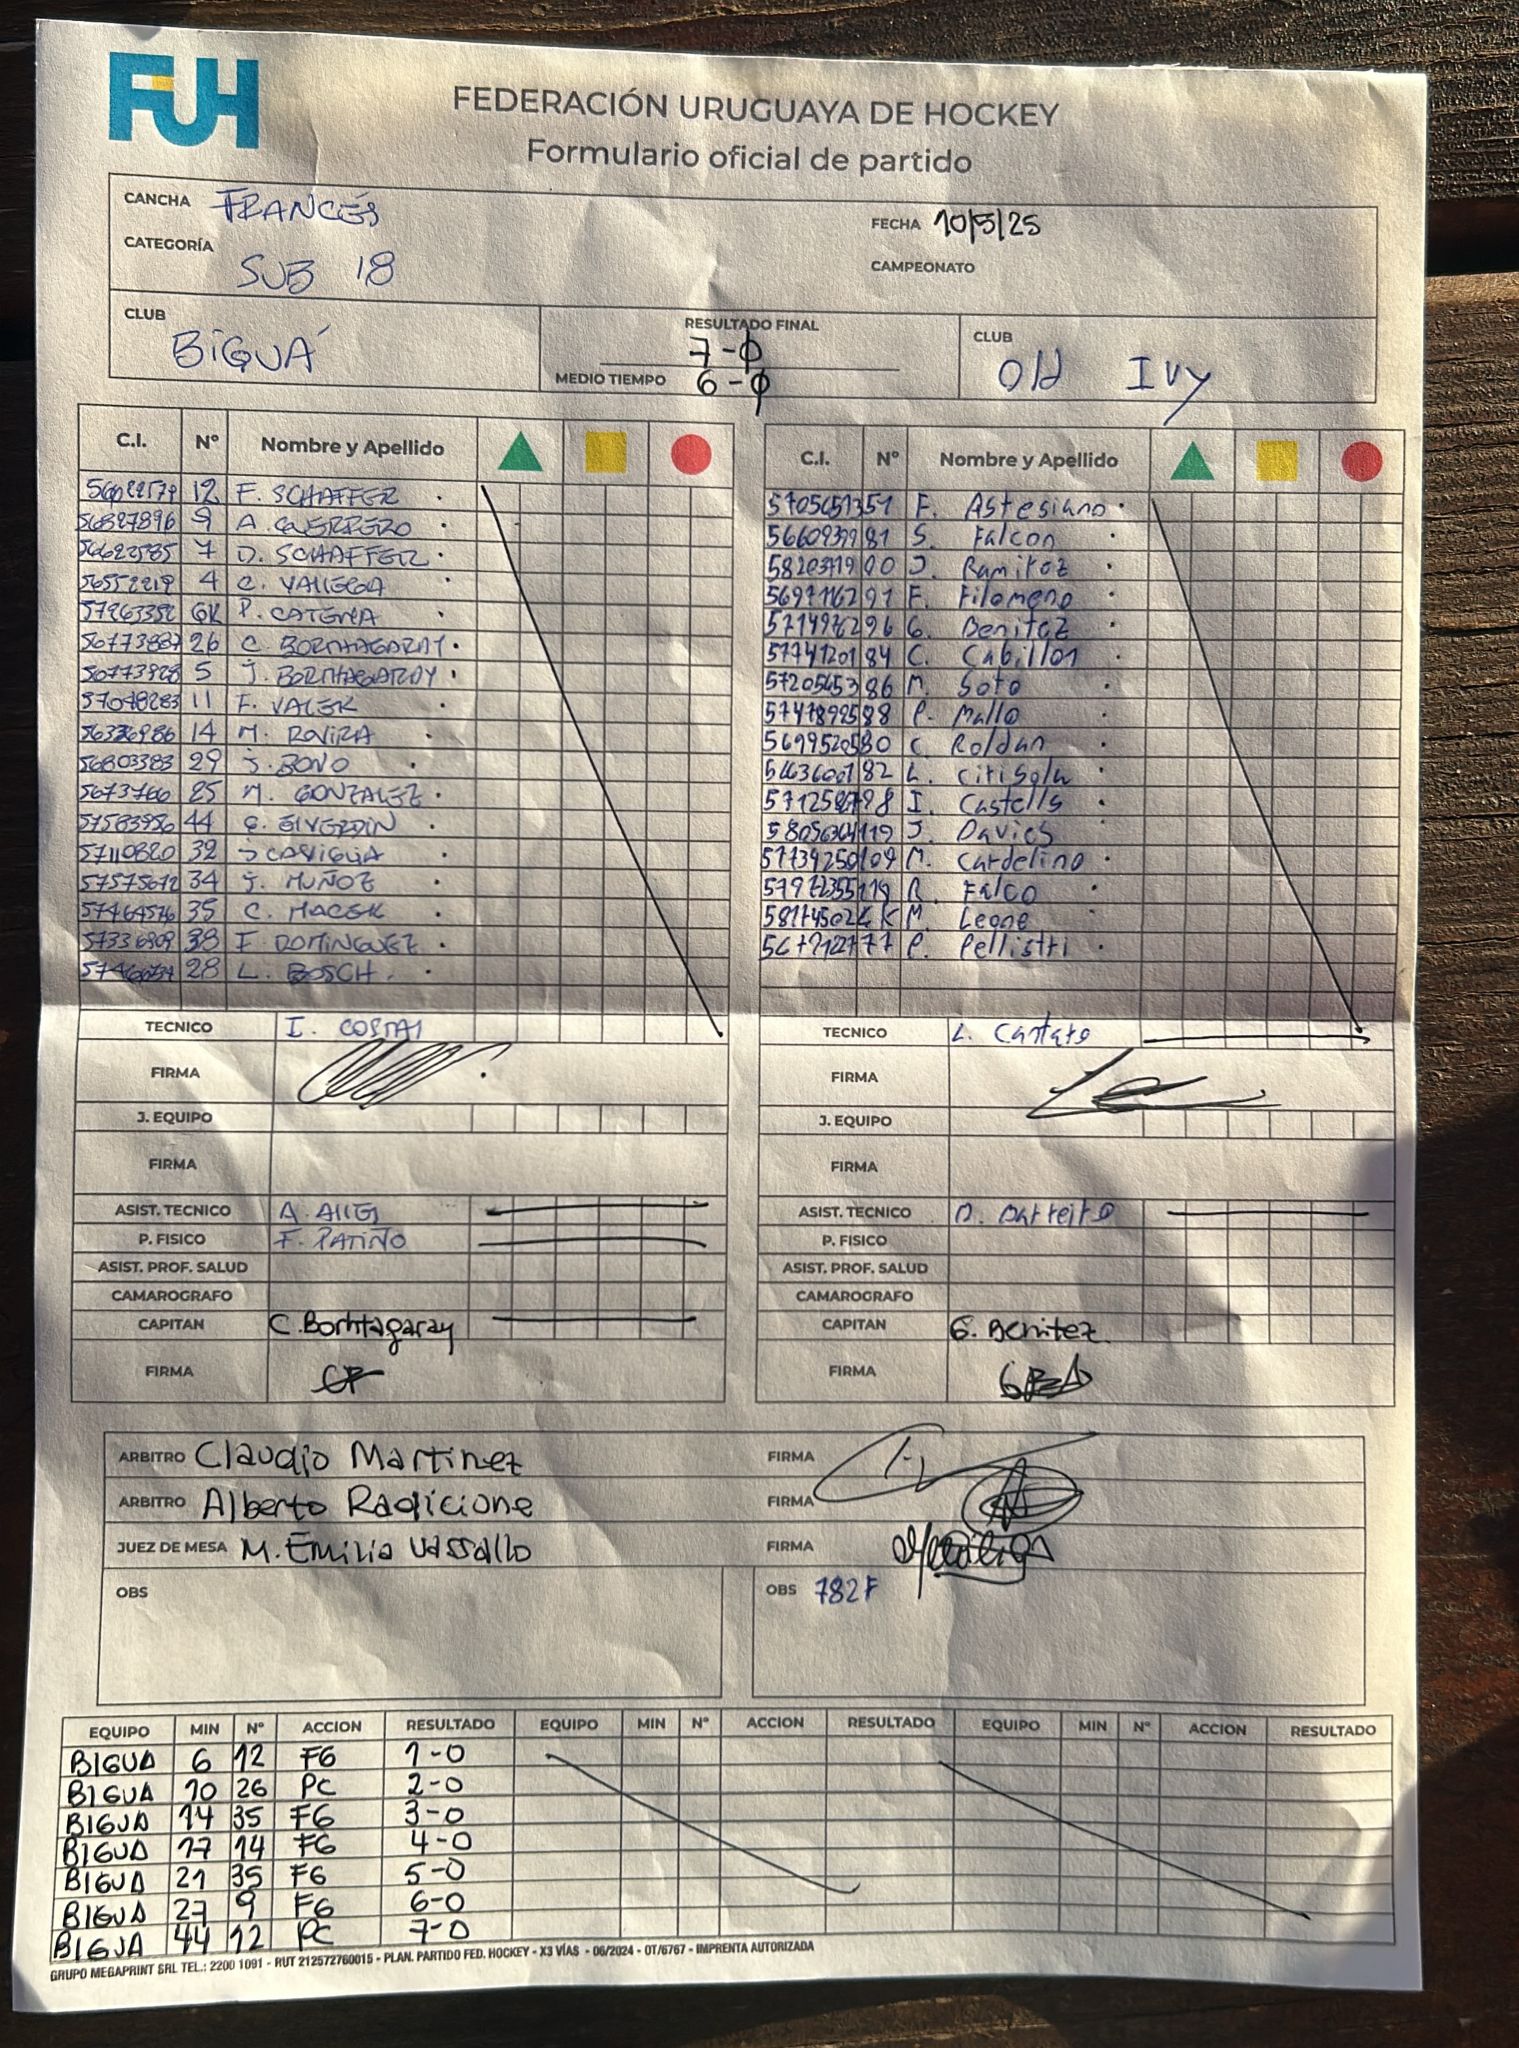 FUH
FEDERACIÓN URUGUAYA DE HOCKEY
Formulario oficial de partido
CANCHA FRANCÉS
FECHA 10/5/25
CATEGORÍA SUB 18
CAMPEONATO
CLUB BIGUÁ
RESULTADO FINAL 7-0
MEDIO TIEMPO 6-0
CLUB Old Ivy
C.I. Nº Nombre y Apellido
12 F. SCHAFFER
56827896 9 A. GUERRERO
56622585 7 D. SCHAFFER
56552219 4 C. VALLEGA
57263352 GK P. CATENA
56773887 26 C. BORNHAGARAY
56773928 5 J. BORNHAGARAY
57048283 11 F. VALER
14 M. ROVIRA
56803383 29 J. BONO
5673766 25 M. GONZALEZ
57583956 44 C. ELVERDIN
57110820 32 J CAVIGLIA
57575672 34 J. MUÑOZ
57464576 35 C. MACEK
57336909 38 F. DOMINGUEZ
28 L. BOSCH
C.I. Nº Nombre y Apellido
F. Astesiano
81 S. Falcon
J. Ramirez
91 F. Filomeno
96 G. Benitez
57741201 84 C. Cubillos
57205653 86 M. Soto
88 P. Mallo
80 C. Roldan
82 L. Cirisola
98 I. Castells
J. Davies
M. Cardelino
R. Falco
M. Leone
77 P. Pellistri
TECNICO I. COSTAS
FIRMA
J. EQUIPO
FIRMA
ASIST. TECNICO A.
P. FISICO F. PATIÑO
ASIST. PROF. SALUD
CAMAROGRAFO
CAPITAN C. Bornhagaray
FIRMA
TECNICO L.
FIRMA
J. EQUIPO
FIRMA
ASIST. TECNICO D. Barreiro
P. FISICO
ASIST. PROF. SALUD
CAMAROGRAFO
CAPITAN G. Benitez
FIRMA
ARBITRO Claudio Martinez FIRMA
ARBITRO Alberto Radicione FIRMA
JUEZ DE MESA M. Emilia Vassallo FIRMA
OBS
OBS 782F
EQUIPO MIN Nº ACCION RESULTADO EQUIPO MIN Nº ACCION RESULTADO EQUIPO MIN Nº ACCION RESULTADO
BIGUA 6 12 FG 1-0
BIGUA 10 26 PC 2-0
BIGUA 14 35 FG 3-0
BIGUA 17 14 FG 4-0
BIGUA 21 35 FG 5-0
BIGUA 27 9 FG 6-0
BIGUA 44 12 PC 7-0
GRUPO MEGAPRINT SRL TEL.: 2200 1091 - RUT 212572760015 - PLAN. PARTIDO FED. HOCKEY - X3 VÍAS - 06/2024 - OT/6767 - IMPRENTA AUTORIZADA